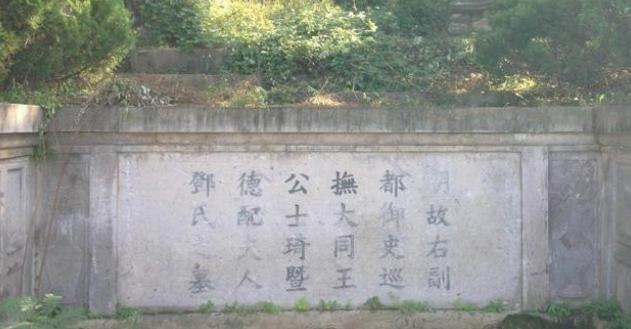 明故右副
都御史巡
撫大同王
公士琦暨
德配夫人
鄧氏之墓